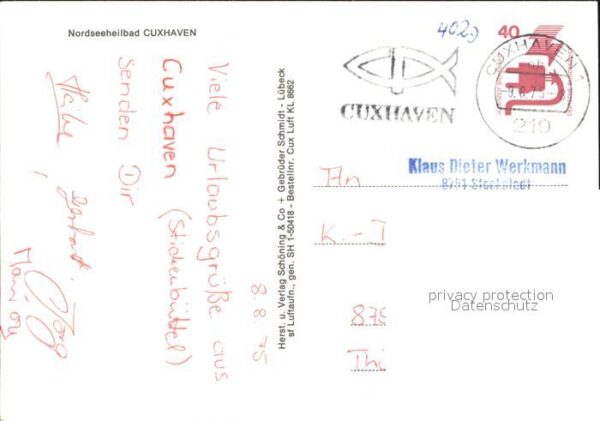 Nordseeheilbad CUXHAVEN
402.
40
CUXHAVEN 1
219
CUXHAVEN
8.8.75
Viele Urlaubsgrüße aus
Cuxhaven (Stickenbüttel)
senden Dir
Heike, Gerhard,
Jörg
Herst. u. Verlag Schöning & Co + Gebrüder Schmidt - Lübeck
sf Luftaufn., gen. SH 1-50418 - Bestellnr. Cux Luft KL 8662
Klaus Dieter Werkmann
8751 Stockstadt
An
K.-J
Thi
privacy protection
Datenschutz